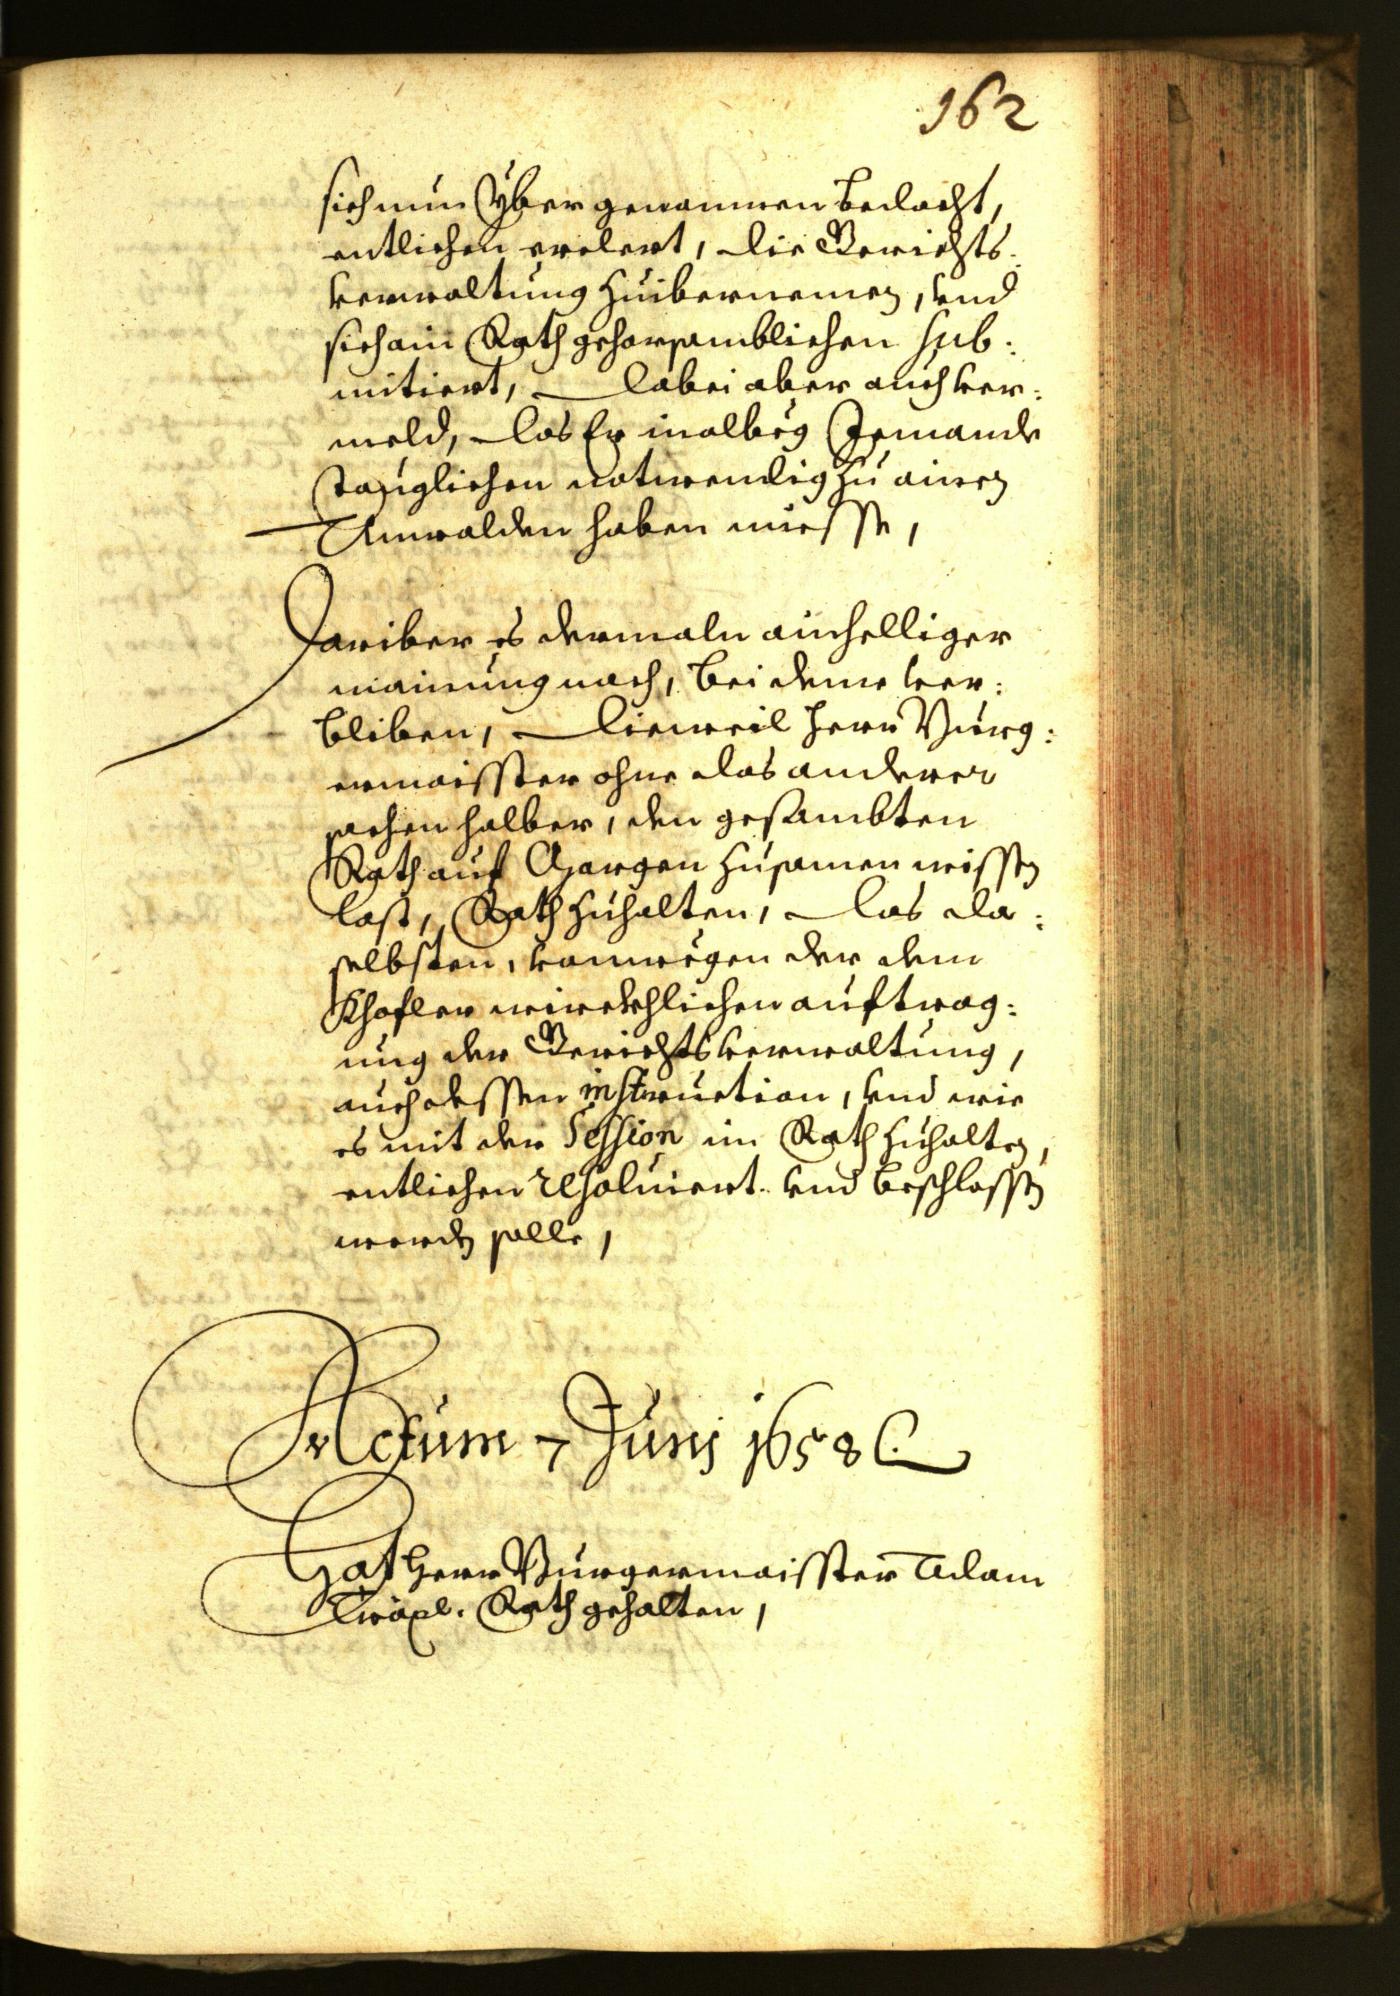 162
sich nun yber genomnen bedacht,
entlichen erclert, die Gerichts:
verwaltung zuibernemen, vnd
sich ain Rath gehorsamblichen sub:
mitiert, dabei aber auch ver:
meld, das Er inalbeg Jemande
tauglichen notwendig zu ainen
Anwalden haben miesse,
Dariber es dermaln ainhelliger
mainung nach, bei deme ver:
bliben, dieweil herr Burg:
ermaisster ohne das anderer
sachen halber, den gesambten
Rath auf Morgen zusamen wissen
last, Rath zuhalten, das da:
selbsten, vonwegen der dem
Khofler wirckhlichen auftrag:
ung der Gerichtsverwaltung,
auch dessen instruction, vnd wie
es mit der Session im Rath zuhalten,
entlichen resoluiert vnd beschlossen
werden solle,
Actum 7 Junj 1658
Hat herr Burgermaisster Adam
Rath gehalten,